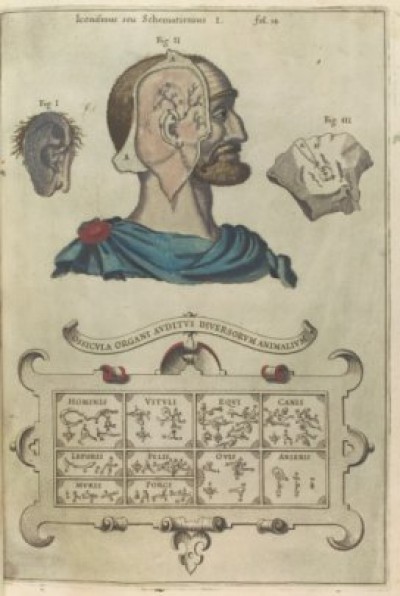 Iconismus seu Schematismus I. fol. 14
Fig II
Fig I
Fig III
OSSICULA ORGANI AVDITVS DIVERSORVM ANIMALIUM
HOMINIS VITVLI EQVI CANIS
LEPORIS FELIS OVIS ANSERIS
MVRIS PORCI